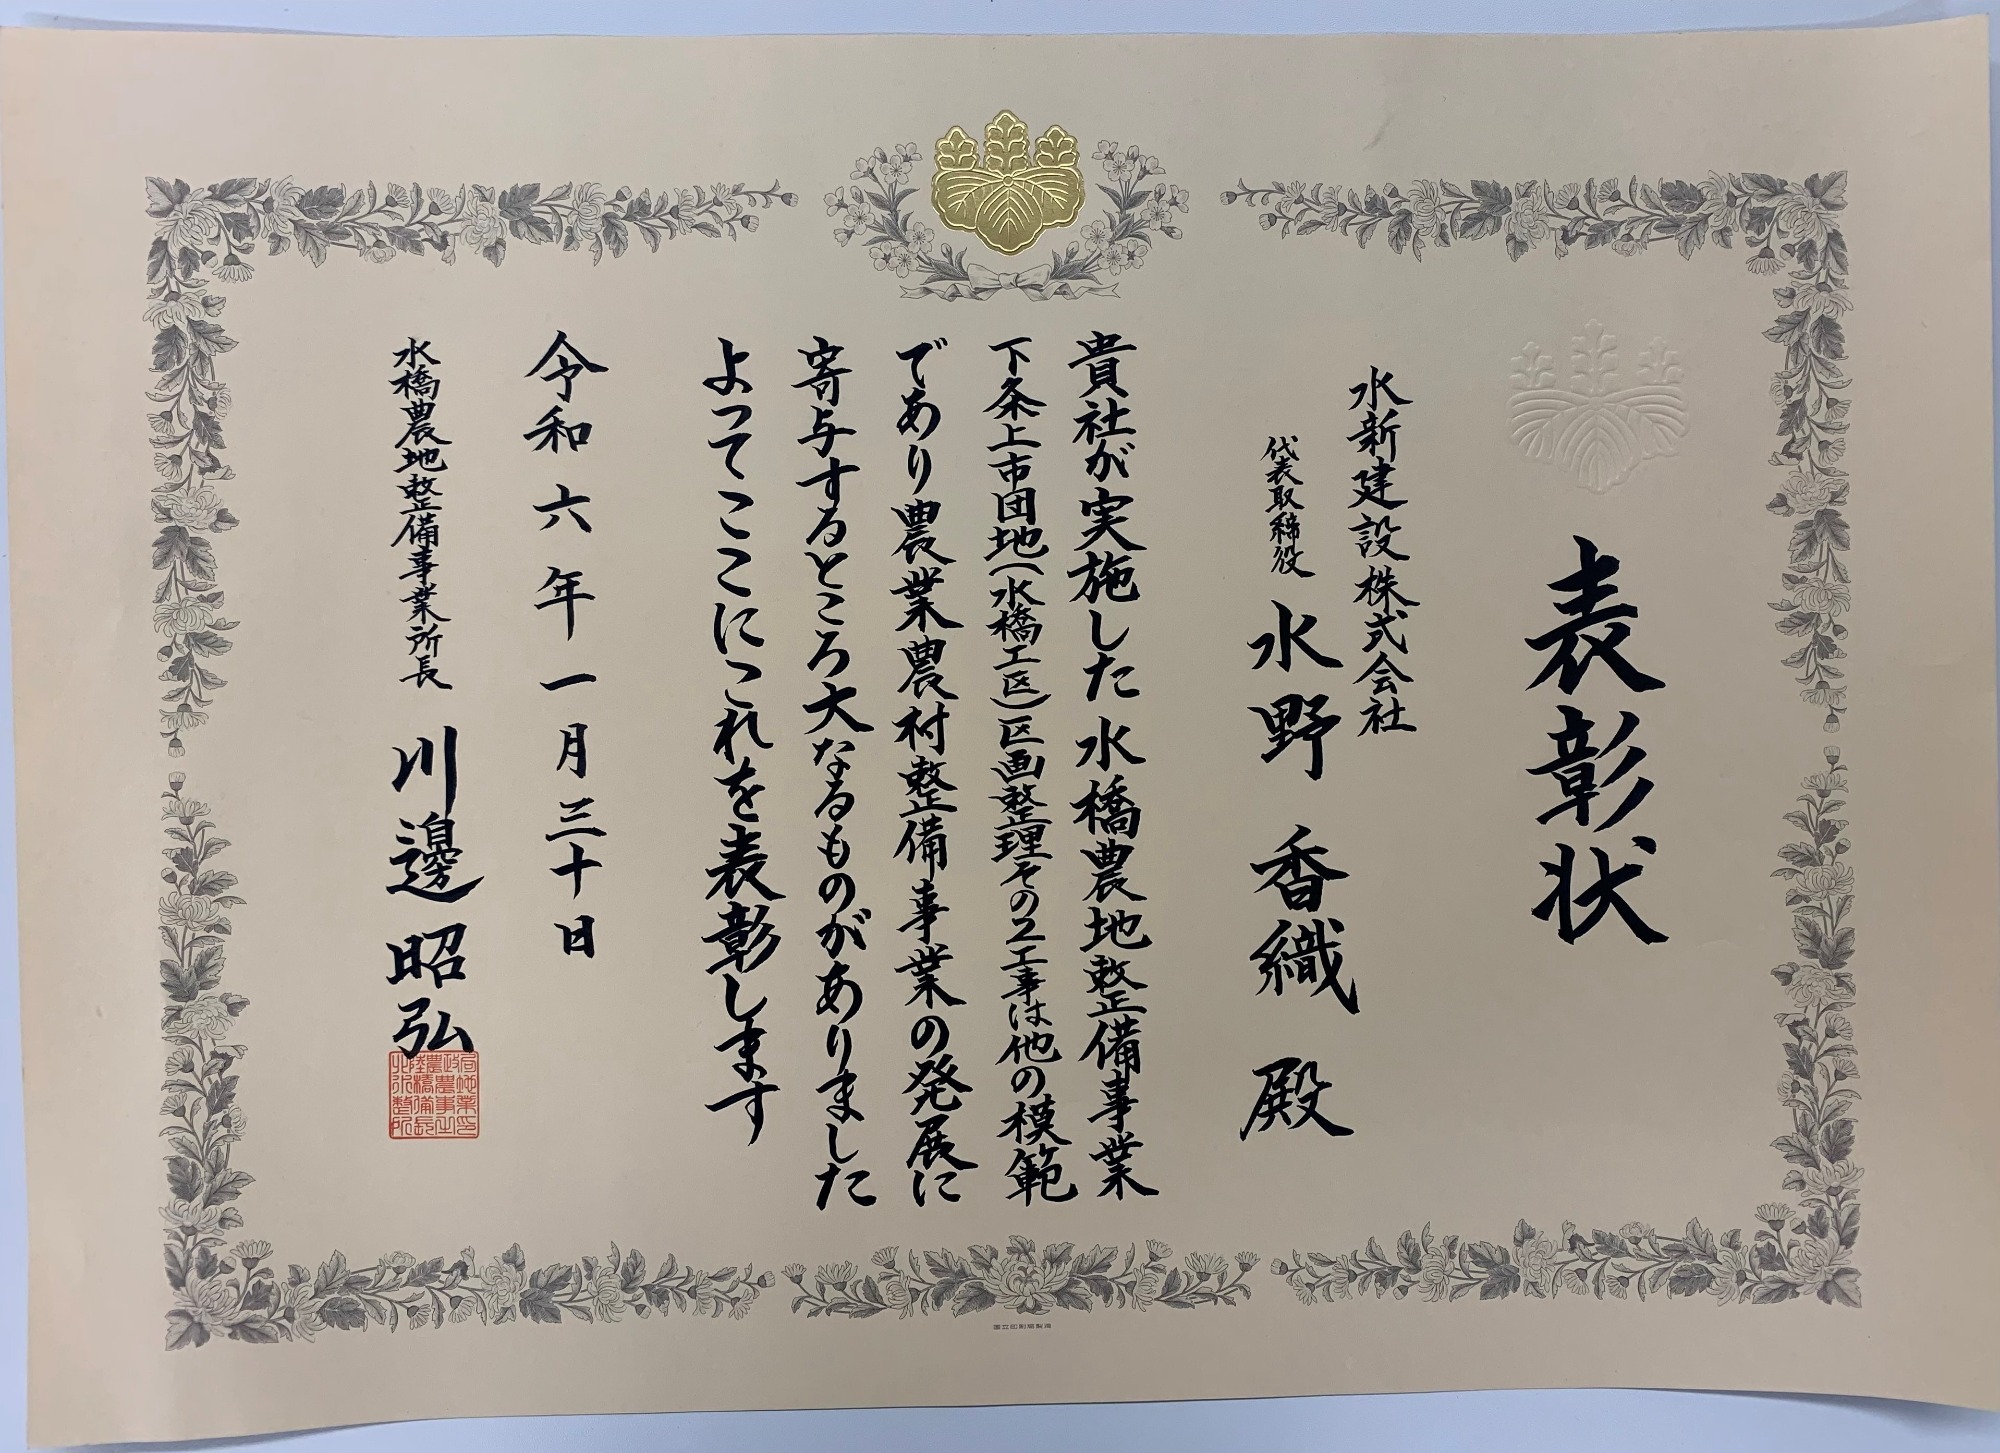 表彰状
水新建設株式会社
代表取締役 水野香織殿
貴社が実施した水橋農地整備事業
下条上市団地(水橋工区)区画整理その2工事は他の模範
であり農業農村整備事業の発展に
寄与するところ大なるものがありました
よってここにこれを表彰します
令和六年一月三十日
水橋農地整備事業所長 川邊昭弘
国立印刷局製造